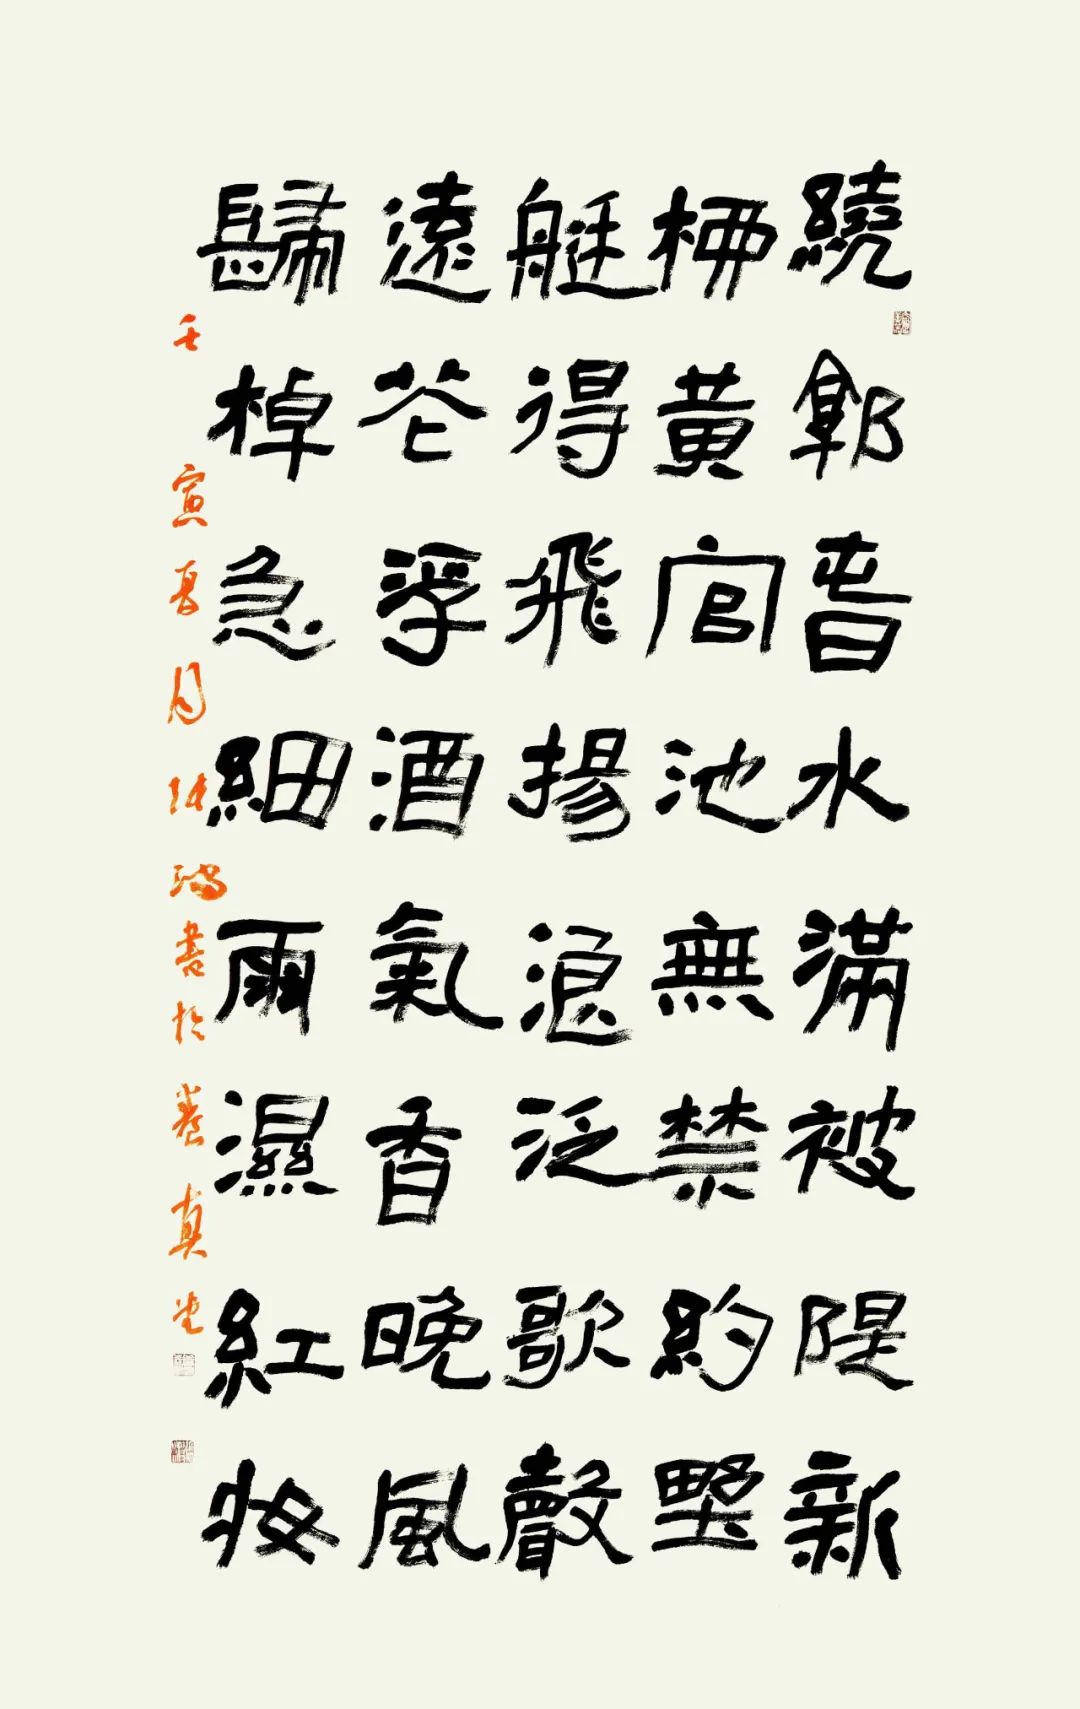 繞郭春水滿被隄新
柳黃官池無禁約墅
艇得飛揚浪泛歌聲
遠花浮酒氣香晚風
歸棹急細雨濕紅妝
壬寅夏月書於養真堂